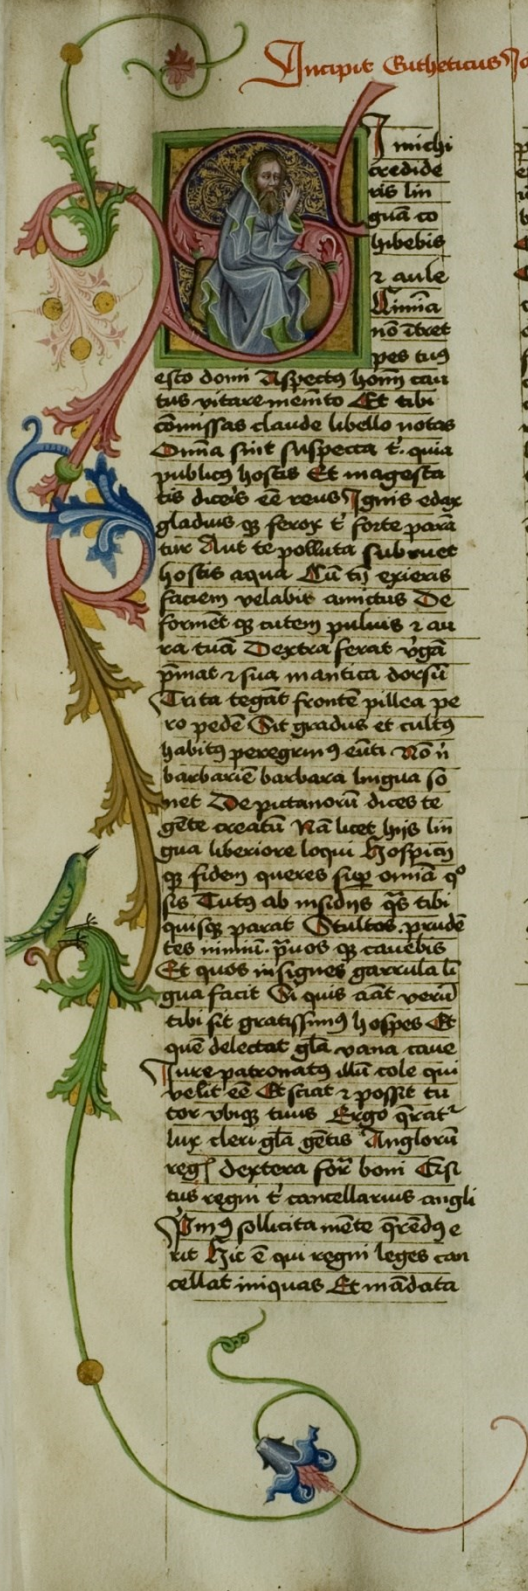 Incipit Eutheticus Jo
SI michi
credide
ris lin
guā co
hibebis
⁊ aule
Limīa
nō ītret
pes tuꝰ
esto domi Aspectꝰ hoīm cau
tus vitare memēto Et tibi
cōmissas claude libello notas
Omīa sint suspecta t̄ quia
publicꝰ hostis Et magesta
tis diceris eē reus Ignis edax
gladius qꝫ ferox t̄ forte parā
tur Aut te polluta subruet
hostis aqua Cū tu exieris
faciem velabit amictus De
formēt qꝫ cutem puluis ⁊ au
ra tuā Dextra ferat v̓gā
p̄mat ⁊ sua mantica dorsū
Trita tegāt frontē pillea pe
ro pedē Sit gradus et cultꝰ
habitꝰ peregrinꝰ eūti Nō n̄
barbariē barbara lingua so
net De pictanorū dices te
gēte creatū Nā licet hijs lin
gua liberiore loqui Hospicij
qꝫ fidem queres suꝑ omīa qͦ
sis Tutꝰ ab insidijs q̄s tibi
quisqꝫ parat Stultos prudē
tes nimiū p̄uos qꝫ cauebis
Et quos insignes garrula lī
gua facit Si quis amat verū
tibi sit gratissimꝰ hospes Et
quē delectat gl̄a vana caue
Iure patronatꝰ illū cole qui
velit eē Et sciat ⁊ possit tu
tor vbiqꝫ tuus Ergo q̄rat᷑
lux cleri gl̄a gētis Anglorū
reg dextera for̄ boni
tus regni t̄ cancellarius angli
Pimꝰ sollicita mēte q̄rēdꝰ e
rit Hic ē qui regni leges can
cellat iniquas Et mādata